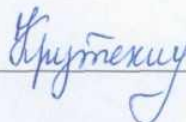 Крутекиу